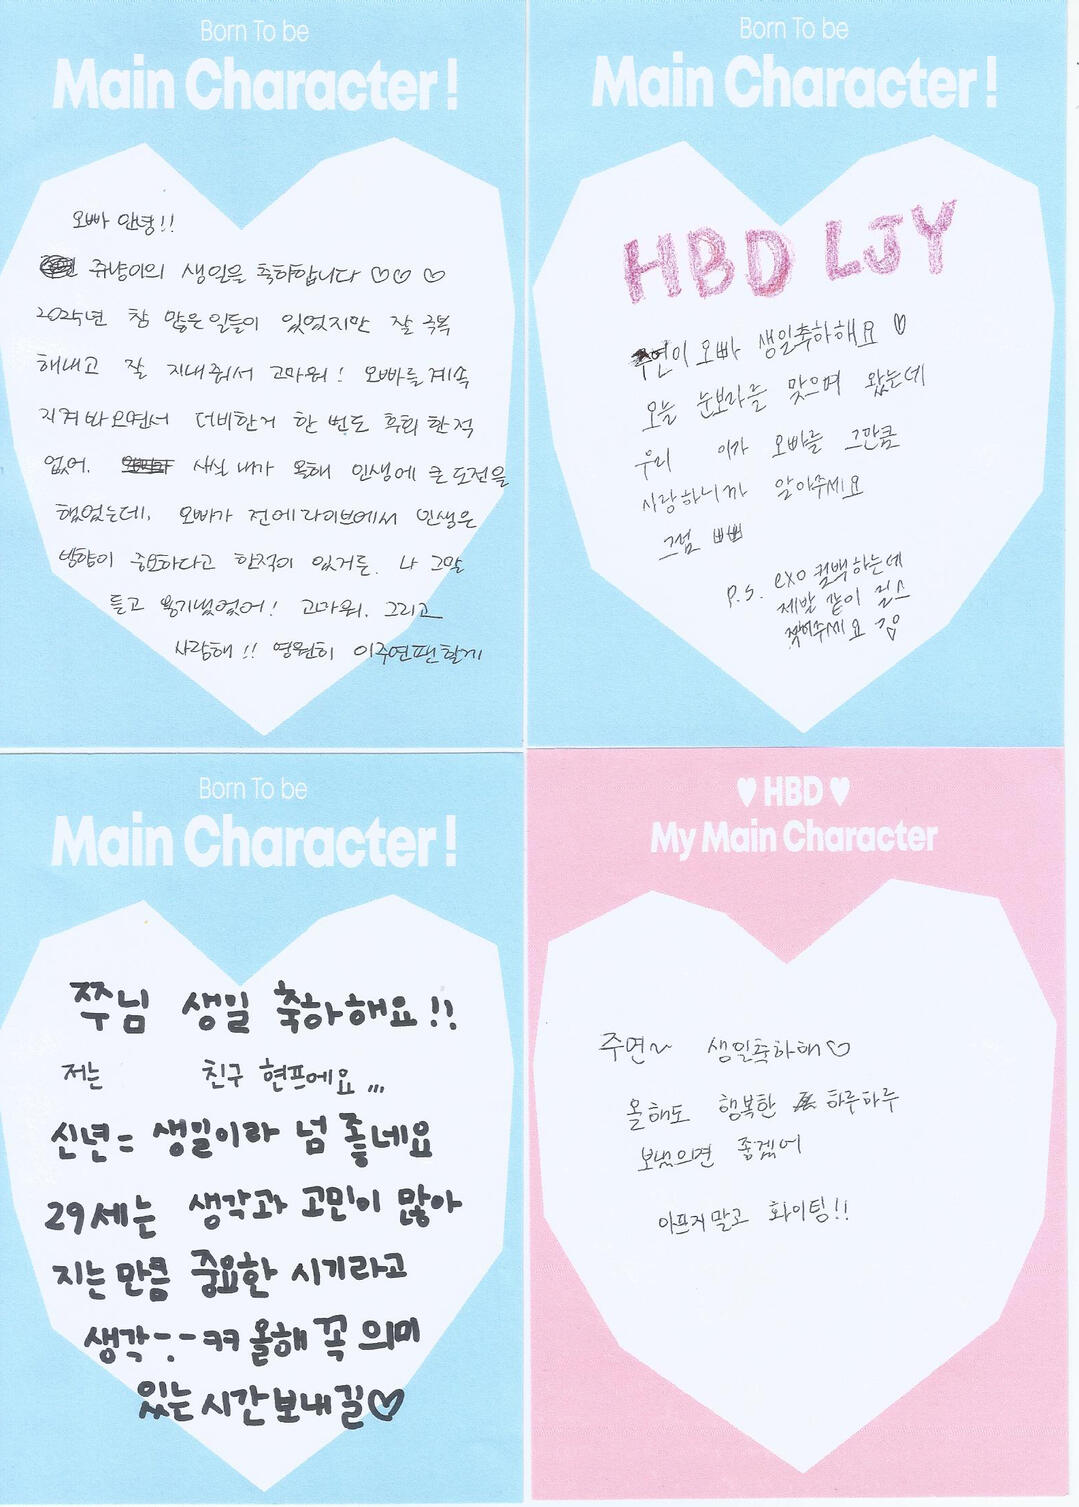 Born To be
Main Character!
오빠 안녕!!
쥬냥이의 생일을 축하합니다 ♡♡ ♡
2025년 참 많은 일들이 있었지만 잘 극복
해내고 잘 지내줘서 고마워! 오빠를 계속
지켜봐오면서 더비한거 한 번도 후회한적
없어. 사실 내가 올해 인생에 큰 도전을
했었는데, 오빠가 전에 라이브에서 인생은
방향이 중요하다고 한적이 있거든. 나 그말
듣고 용기냈었어! 고마워. 그리고
사랑해!! 영원히 이주연팬할게
Born To be
Main Character!
HBD LJY
주연이 오빠 생일축하해요 ♡
오늘 눈보라를 맞으며 왔는데
우리 이가 오빠를 그만큼
사랑하니까 알아주세요
그럼 빠빠
P.S. exo 컴백하는데
제발 같이 챌스
찍어주세요
Born To be
Main Character!
쭈님 생일 축하해요!!
저는 친구 현프에요,,,
신년 = 생일이라 넘 좋네요
29세는 생각과 고민이 많아
지는 만큼 중요한 시기라고
생각--ㅋㅋ 올해 꼭 의미
있는 시간 보내길♡
♥ HBD ♥
My Main Character
주연~ 생일축하해♡
올해도 행복한 하루하루
보냈으면 좋겠어
아프지말고 화이팅!!